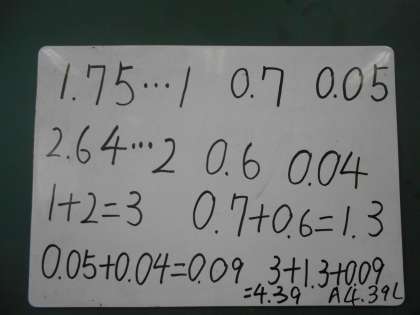 1.75…1 0.7 0.05
2.64…2 0.6 0.04
1+2=3 0.7+0.6=1.3
0.05+0.04=0.09 3+1.3+0.09
=4.39 A4.39L